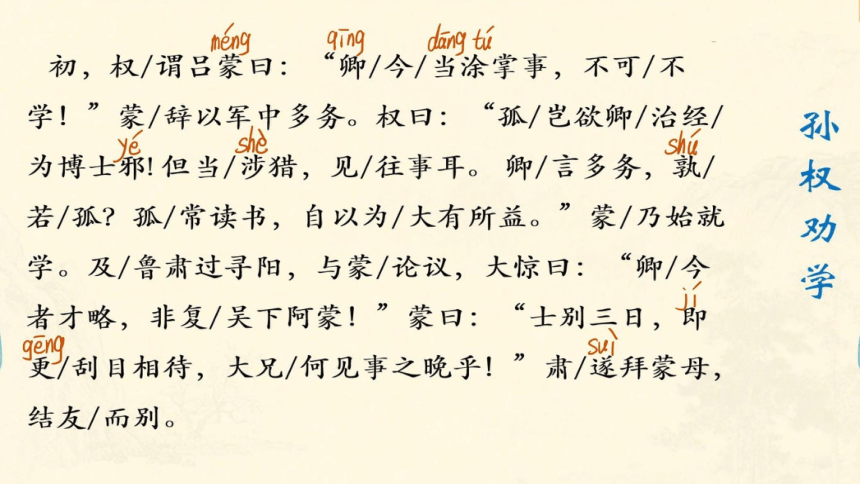 méng qīng dāng tú
初，权/谓吕蒙曰：“卿/今/当涂掌事，不可/不
学！”蒙/辞以军中多务。权曰：“孤/岂欲卿/治经/
yé shè shú
为博士邪!但当/涉猎，见/往事耳。卿/言多务，孰/
若/孤？孤/常读书，自以为/大有所益。”蒙/乃始就
学。及/鲁肃过寻阳，与蒙/论议，大惊曰：“卿/今
者才略，非复/吴下阿蒙！”蒙曰：“士别三日，即
jí
gēng suì
更/刮目相待，大兄/何见事之晚乎！”肃/遂拜蒙母，
结友/而别。
孙权劝学